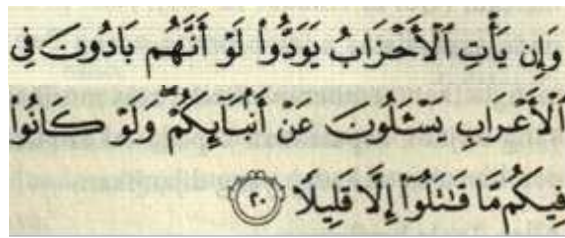 وَإِن يَأْتِ ٱلْأَحْزَابُ يَوَدُّوا۟ لَوْ أَنَّهُم بَادُونَ فِى
ٱلْأَعْرَابِ يَسْـَٔلُونَ عَنْ أَنۢبَآئِكُمْ ۖ وَلَوْ كَانُوا۟
فِيكُم مَّا قَـٰتَلُوٓا۟ إِلَّا قَلِيلًا ۝٢٠